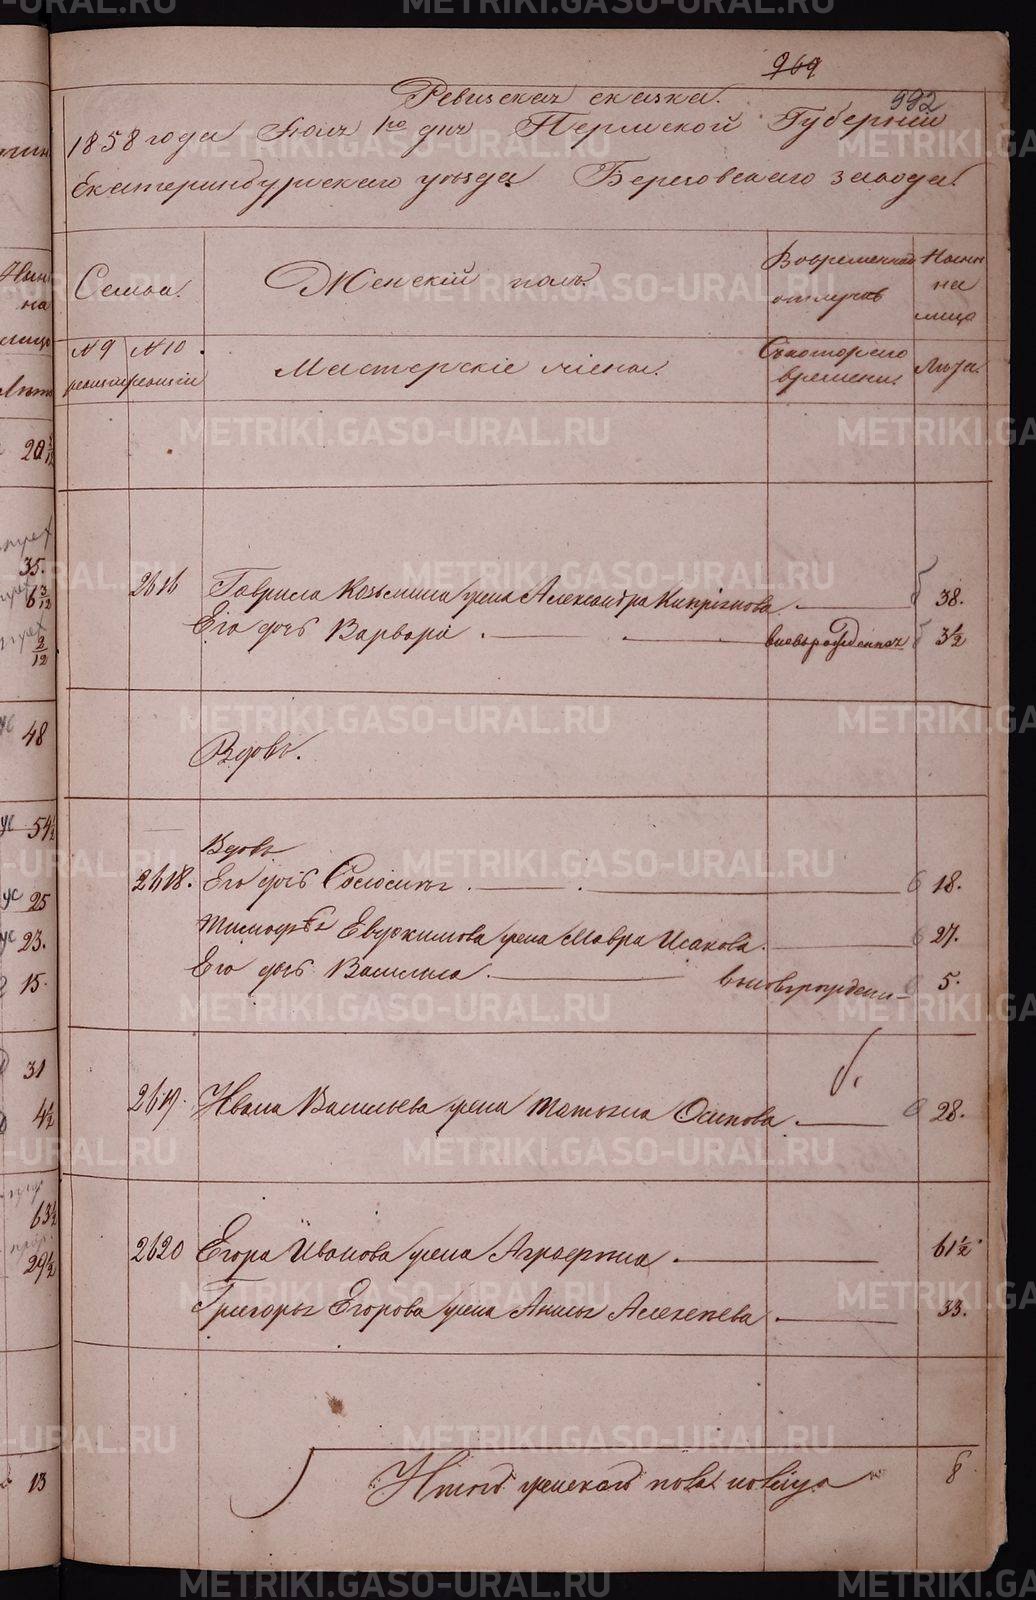 969
592
Ревизская сказка.
1858 года Іюня 1го дня Пермской Губерніи
Екатеринбургскаго уезда Березовскаго завода.
Семьи. Женскій полъ. Во временной отлучкѣ Ныне на лицо
№ 9 ревизіи №10 ревизіи Мастерскіе жены. Съ котораго времени. Лѣта.
2616 Гаврила Козьмина жена Александра 38.
Его дочь Варвара вновьрожденная 3½
Вдовы.
Вдовы
2618. Его дочь 18.
Тимофея Евдокимова жена Мавра Исакова 27.
Его дочь Василиса вновьрожден 5.
2619. Ивана Васильева жена Татьяна Осипова 28.
2620 Егора Иванова жена Аграфена 61½
Григорья Егорова жена Анна Алексеева 33.
Итого женскаго пола на лицо 8
20
35.
6 3/12
2/12
48
54½
25
23.
15.
31
4½
63½
29½
13
METRIKI.GASO-URAL.RU